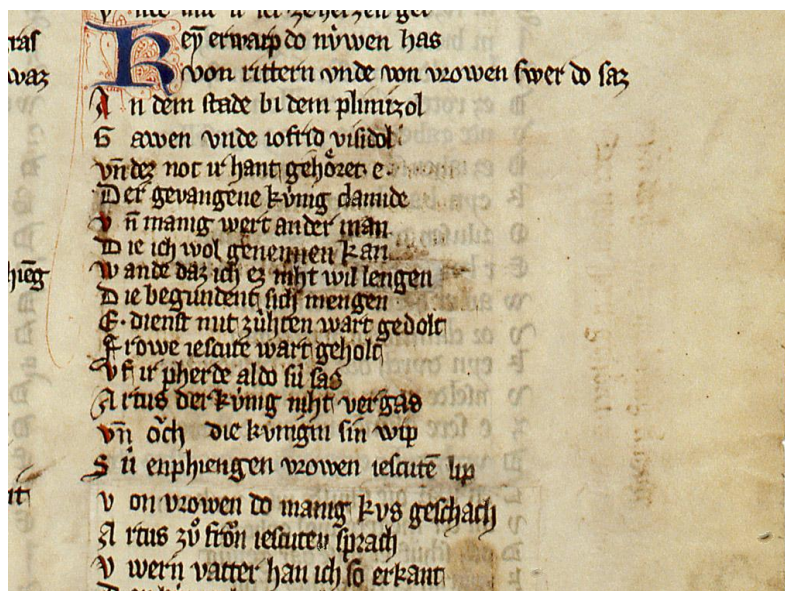 Keẏ erwarp do nv̇wen has
von rittern vnde von vrowen swer do saz
An dem stade bi dem plimizol
Gawen vnde iofrid ydol
vn̄ dez not ir hant gehöret e.
Der gevangene kv́nig clamide
Vn̄ manig wert ander man
Die ich wol genennen kan
Wande daz ich ez niht wil lengen
Die begundent sich mengen
E. dienst mit zv́hten wart gedolt
Frowe iescute wart geholt
Vf ir pherde aldo sú sas
Artus der kv́nig niht vergas
vn̄ och die kv́nigin sin wip
Sú enphiengen vrowen iescutē lip
Von vrowen do manig kvs geschach
Artus zů frōn iescuten sprach
Vwern vatter han ich so erkant